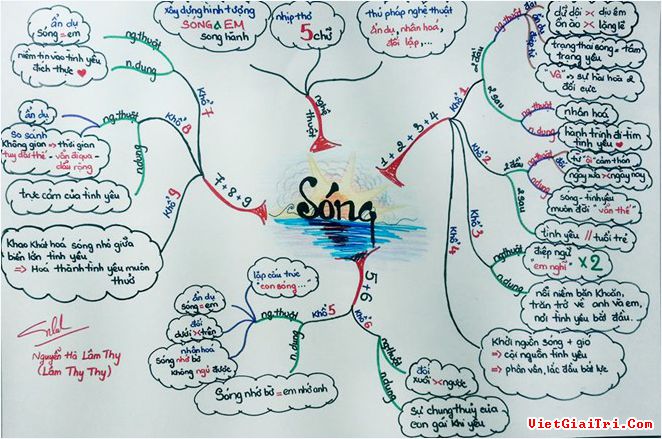 Sóng
nghệ thuật
xây dựng hình tượng
SÓNG & EM
song hành
nhịp thơ
5 chữ
thủ pháp nghệ thuật
ẩn dụ, nhân hoá,
đối lập,...
1 + 2 + 3 + 4
Khổ 1
2 đầu
ng.thuật
đối
dữ dội >< dịu êm
ồn ào >< lặng lẽ
ẩn dụ
trạng thái sóng = tâm
trạng yêu
"Và" => sự hài hoà 2
đối cực
2 sau
ng.thuật
nhân hoá
n.dung
hành trình đi tìm
tình yêu
Khổ 2
2 đầu
ng.thuật
đối
từ "ôi" cảm thán
ngày xưa >< ngày nay
n.dung
sóng - tình yêu
muôn đời "vẫn thế"
2 sau
tình yêu // tuổi trẻ
Khổ 3
ng.thuật
điệp ngữ
"em nghĩ" x2
n.dung
nỗi niềm băn khoăn,
trăn trở về anh và em,
nơi tình yêu bắt đầu...
Khổ 4
Khởi nguồn sóng + gió
=> cội nguồn tình yêu
=> phân vân, lắc đầu bất lực
5 + 6
Khổ 5
ng.thuật
lặp cấu trúc
"con sóng..."
ẩn dụ
sóng = em
đối
dưới >< trên
nhân hoá
sóng nhớ bờ
không ngủ được
n.dung
Sóng nhớ bờ = em nhớ anh
Khổ 6
ng.thuật
đối
xuôi >< ngược
n.dung
Sự chung thuỷ của
con gái khi yêu
7 + 8 + 9
Khổ 7
ng.thuật
ẩn dụ
sóng = em
n.dung
niềm tin vào tình yêu
đích thực
Khổ 8
ng.thuật
ẩn dụ
so sánh
Không gian => thời gian
"tuy dài thế - vẫn đi qua -
dẫu rộng"
n.dung
trực cảm của tình yêu
Khổ 9
Khao khát hoá sóng nhỏ giữa
biển lớn tình yêu
=> Hoá thành tình yêu muôn
thuở
Nguyễn Hà Lâm Thy
(Lâm Thy Thy)
VietGiaiTri.Com